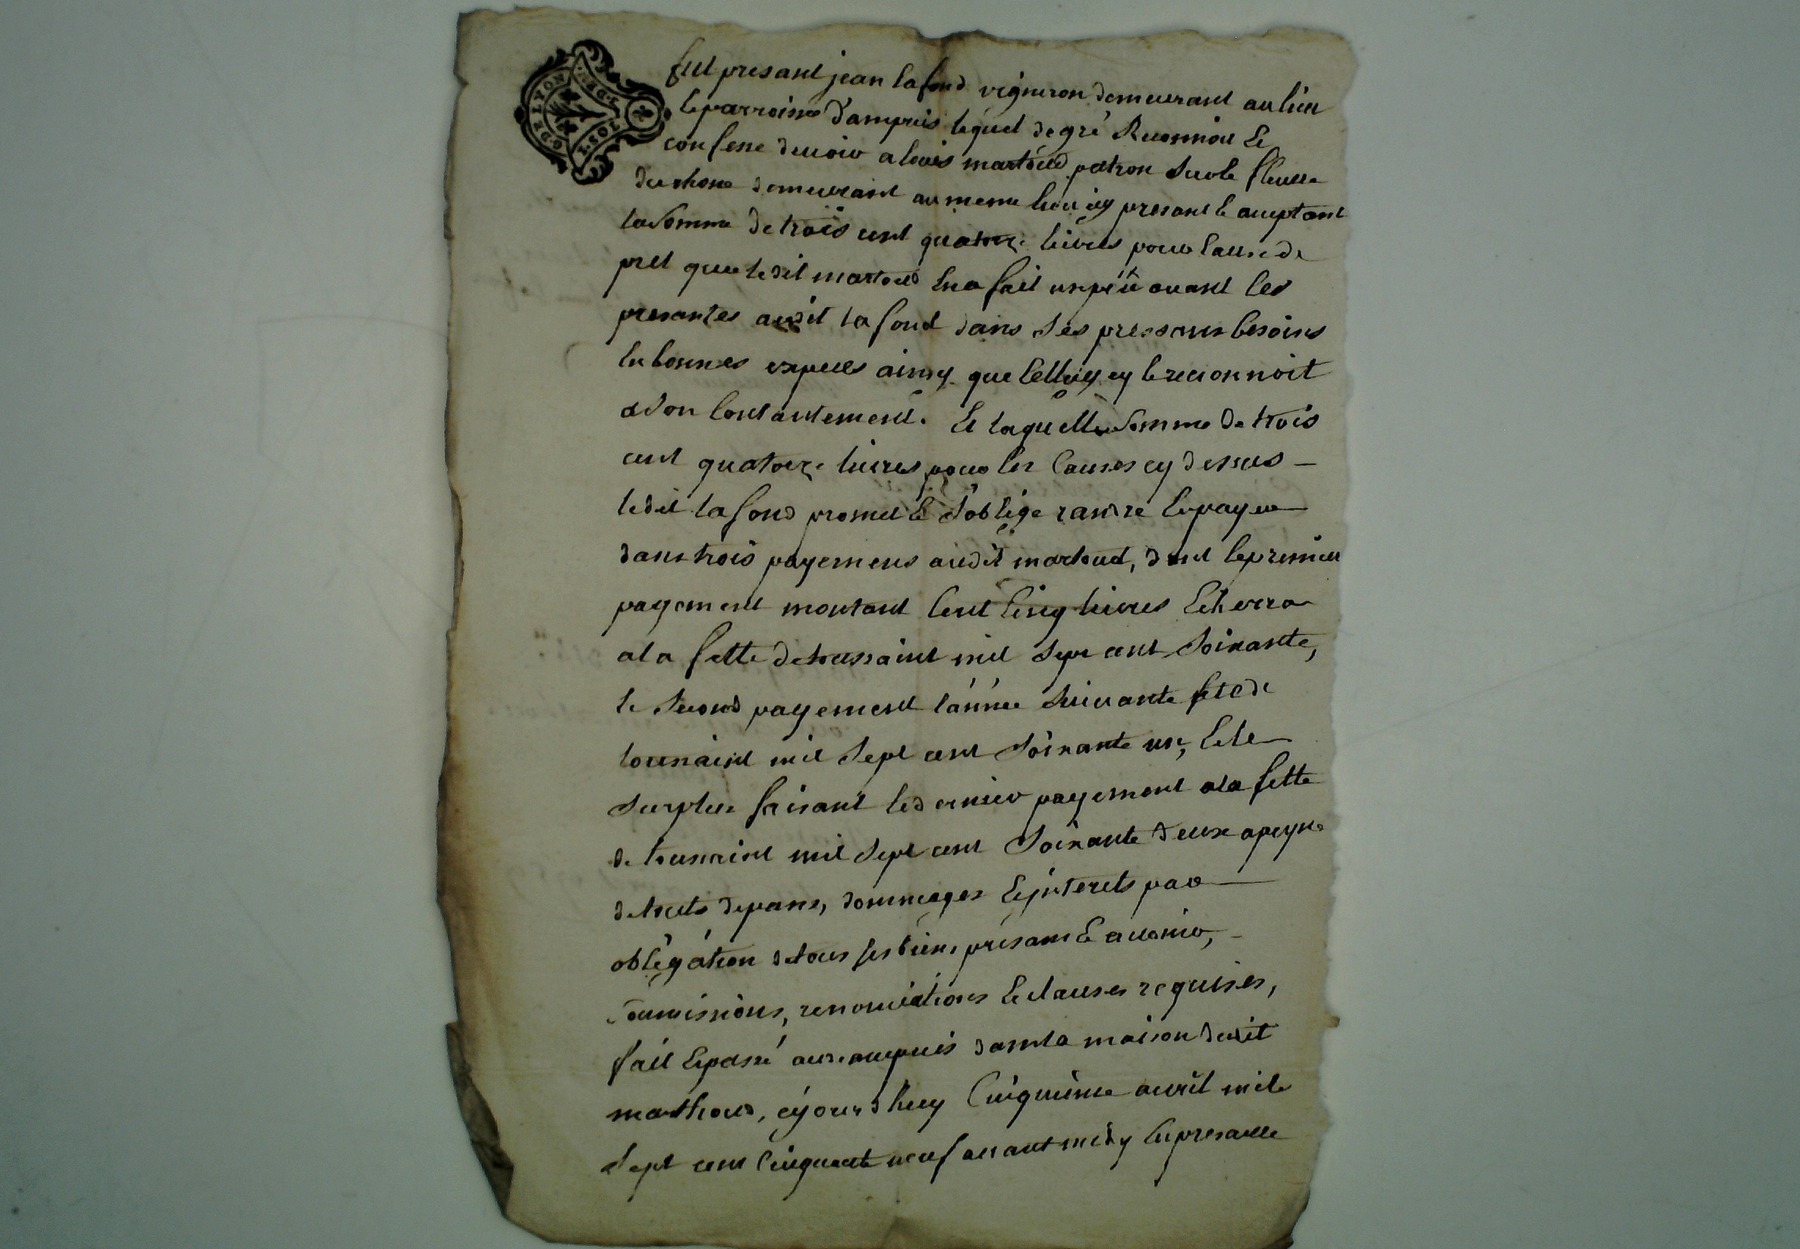 DE LYON
fut presant jean lafond vigneron demeurant au lieu
& parroisse d'ampuis lequel de gré Reconnoit &
confesse devoir a louis martoud patron sur le fleuve
du rhone demeurant au meme lieu icy present & acceptant
la somme de trois cent quatorze livres pour cause de
pret que ledit martoud en a fait un peu avant les
presantes audit lafond dans ses pressans besoins
en bonnes especes ainsy que celluy cy le reconnoit
a son contantement. Et laquelle somme de trois
cent quatorze livres pour les causes cy dessus
ledit lafond promet & s'oblige randre & payer
dans trois payemens audit martoud, dont le premier
payement montant cent cinq livres echerra
a la fette de toussaint mil sept cent soixante,
le second payement l'année suivante fete de
toussaint mil sept cent soixante un, & le
surplus faisant le dernier payement a la fette
de toussaint mil sept cent soixante deux a peyne
de touts depans, dommages & interets par
obligation de tous ses biens présans & avenir,
soumissions, renonciations & clauses requises,
fait & passé audit ampuis dans la maison dudit
marthoud, cejourdhuy cinquième avril mil
sept cent cinquante neuf avant midy en presance